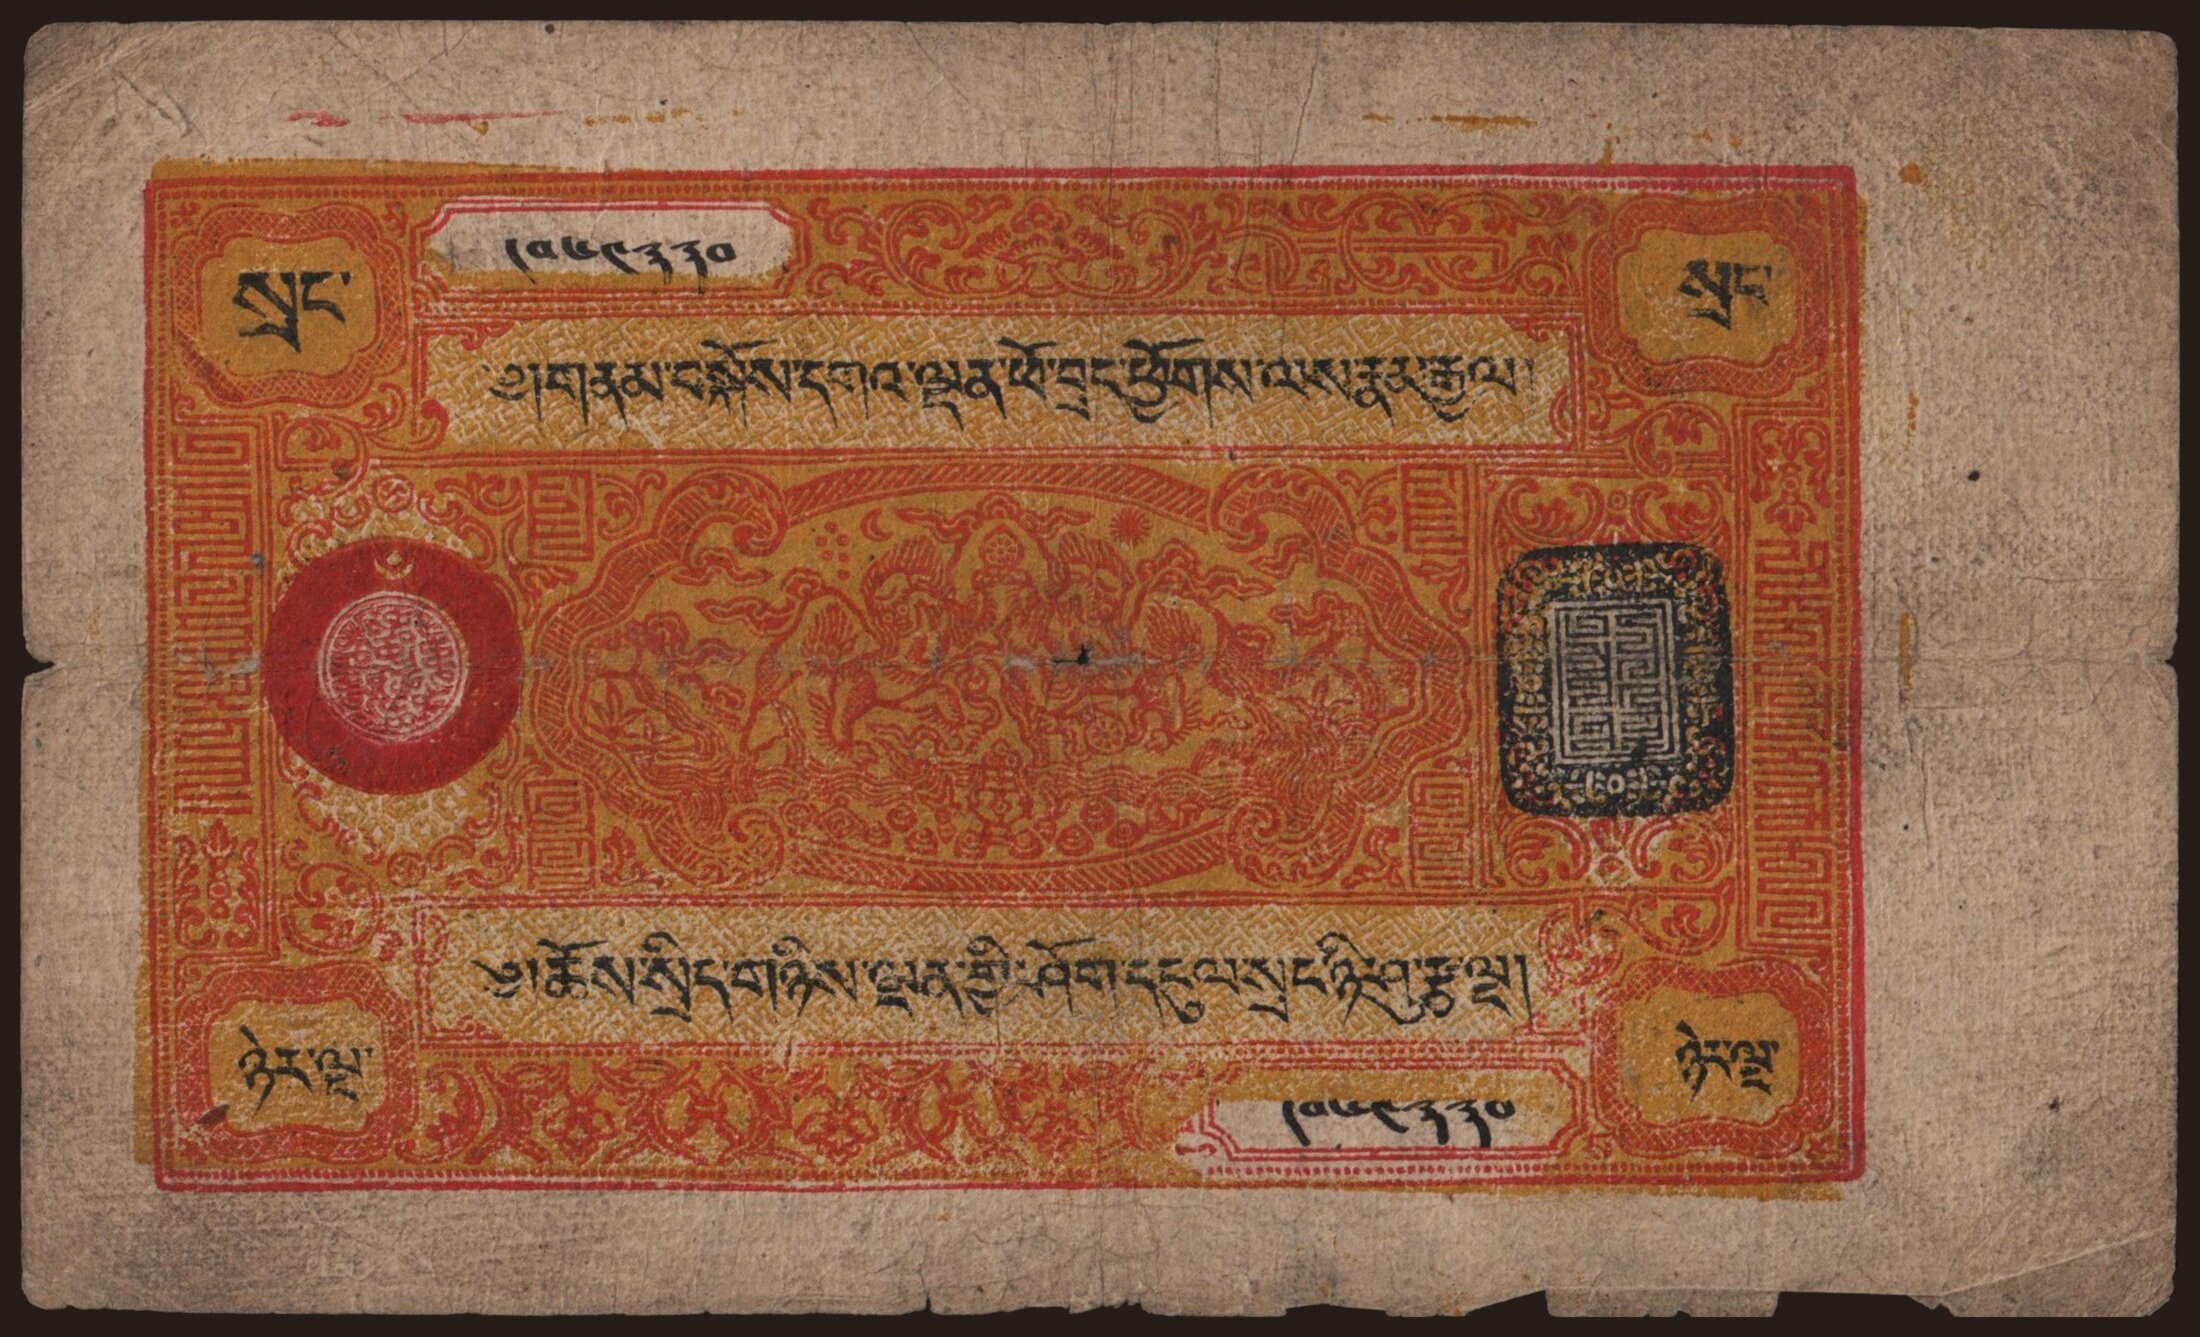 ༡༠༧༩༣༣༠
སྲང་ སྲང་
༄།གནམ་བསྐོས་དགའ་ལྡན་ཕོ་བྲང་ཕྱོགས་ལས་རྣམ་རྒྱལ།
༄།ཆོས་སྲིད་གཉིས་ལྡན་གྱི་ཤོག་དངུལ་སྲང་ཉི་ཤུ་རྩ་ལྔ།
ཉེར་ལྔ་ ཉེར་ལྔ་